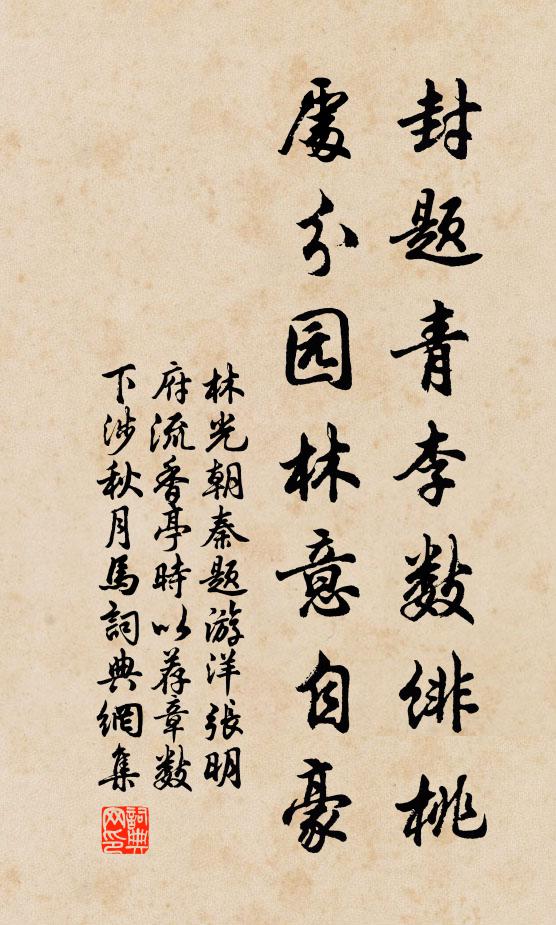 封题青李数绯桃
處分园林意自豪
林光朝奉题游洋张明
府流香亭時以荐章数
下涉秋月馬詞典網集
詞典网印